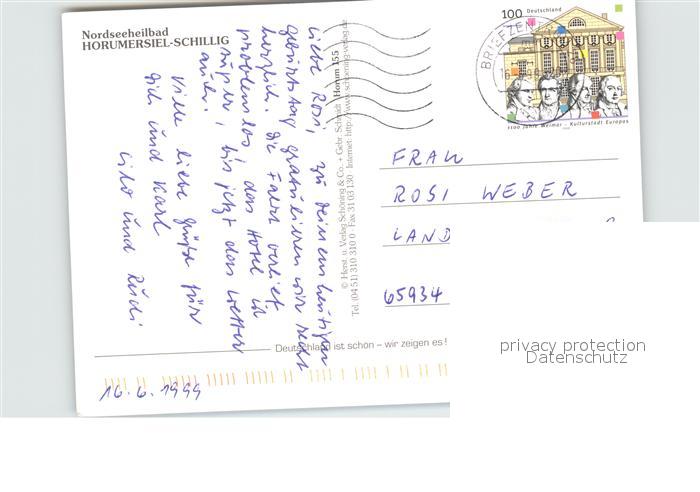 Nordseeheilbad
HORUMERSIEL-SCHILLIG
Liebe Rosi, zu Deinem heutigen
Geburtstag gratulieren wir recht
herzlich. Die Fahrt verlief
problemlos, das Hotel ist
super, bis jetzt das Wetter
auch.
Viele liebe Grüße für
Dich und Karl
und Rudi
16.6.1999
Deutschland ist schön – wir zeigen es!
© Herst. u. Verlag Schöning & Co. + Gebr. Schmidt Horum 155
Tel. (04 51) 310 310 0 · Fax 31 03 130 · Internet: http://www.schoening-verlag.de
100 Deutschland
1100 Jahre Weimar – Kulturstadt Europas
BRIEFZEN
FRAU
ROSI WEBER
LAND
65934
privacy protection
Datenschutz